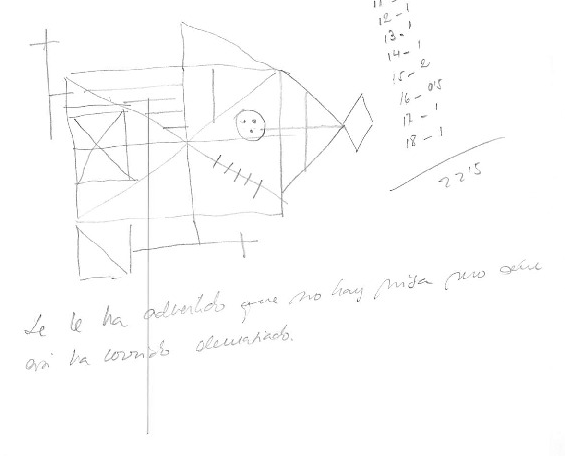 12-1
13-1
14-1
15-2
16-0'5
17-1
18-1
22'5
Se le ha advertido que no hay prisa pero aún
así ha corrido demasiado.